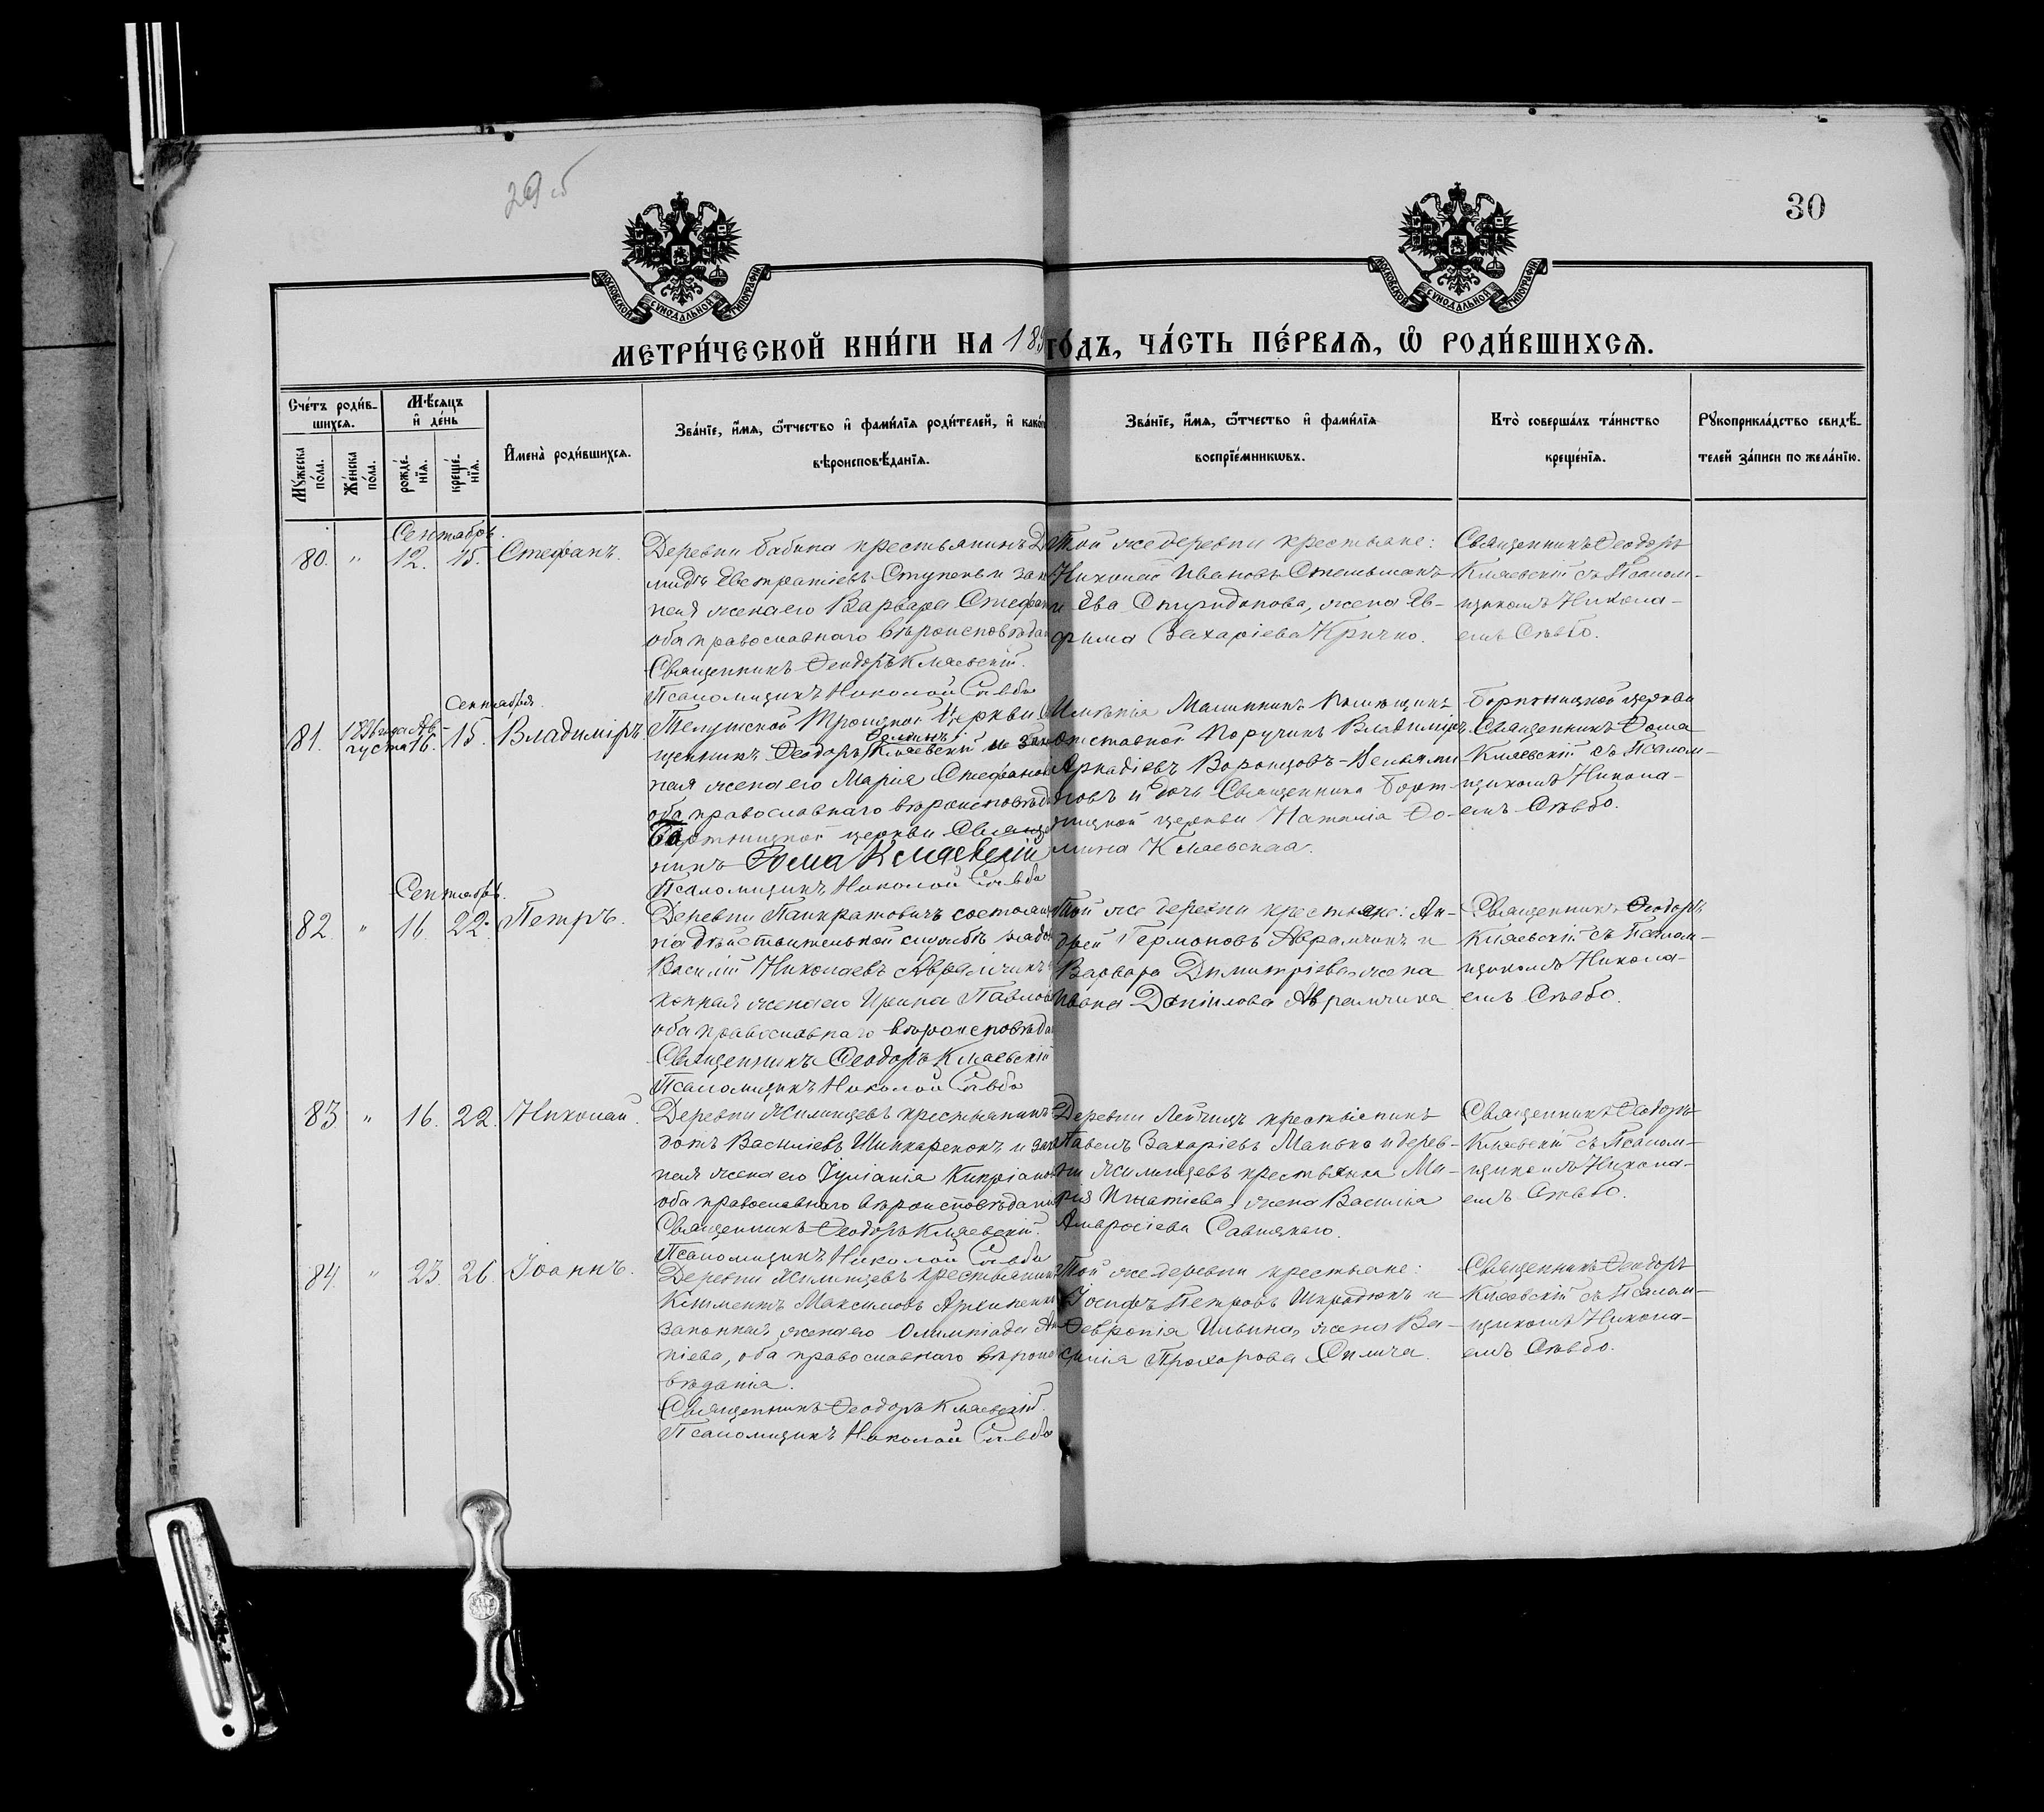 29 об
30
МОСКОВСКОЙ СѴНОДАЛЬНОЙ ТИПОГРАФІИ
МОСКОВСКОЙ СѴНОДАЛЬНОЙ ТИПОГРАФІИ
МЕТРИ́ЧЕСКОЙ КНИ́ГИ НА 189 ГО́ДЪ, ЧА́СТЬ ПЕ́РВАѦ, Ѽ РОДИ́ВШИХСѦ.
Сче́тъ роди́в-
шихсѧ.
Мꙋ́жеска по́ла.
Же́нска по́ла.
Мѣ́сѧцъ
и҆ де́нь
рожде́-нїѧ.
креще́-нїѧ.
И҆мена̀ роди́вшихсѧ.
Зва́нїе, и҆́мѧ, ѻ҆́тчество и҆ фами́лїѧ роди́телей, и҆ како́гѡ
вѣроисповѣ́данїѧ.
Зва́нїе, и҆́мѧ, ѻ҆́тчество и҆ фами́лїѧ
воспрїе́мникѡвъ.
Кто̀ соверша́лъ та́инство
креще́нїѧ.
Рꙋкоприкла́дство свидѣ́-
телей за́писи по жела́нїю.
Сентябрь.
80. " 12. 15. Стефанъ.
Деревни Бабина крестьянинъ
Евстратіевъ Ступень и зак
ная жена его Варвара Стефан
оба православнаго вѣроисповѣда
Священникъ Ѳеодоръ Кмаевскій.
Псаломщикъ Николай Сѣвбо
Той же деревни крестьяне:
Николай Ивановъ Стельмахъ
и Ева Спиридонова, жена Ев-
фима Захаріева Кричко.
Священникъ Ѳеодоръ
Кмаевскій съ Псалом-
щикомъ Никола-
емъ Сѣвбо.
Сентября.
81. 1896 года Ав-
густа 16. 15. Владиміръ
Троицкой Церкви
щенникъ Ѳеодоръ Ѳоминъ Кмаевскій и зак
ная жена его Марія Стефанов
оба православнаго вѣроисповѣд
Бортницкой церкви Свяще
никъ Ѳома Кмаевскій
Псаломщикъ Николай Сѣвбо
Имѣнія Малинникъ Помѣщикъ
отставной Поручикъ Владиміръ
Аркадіевъ Воронцовъ-Вельями-
новъ и дочь Священника Борт-
ницкой церкви Наталія Ѳо-
мина Кмаевская.
Бортницкой церкви
Священникъ Ѳома
Кмаевскій съ Псалом-
щикомъ Никола-
емъ Сѣвбо.
Сентябрь.
82. " 16. 22. Петръ.
Деревни Панкратовичъ состоящ
на дѣйствительной службѣ
Василій Николаевъ Аврамчикъ
конная жена его Ирина Павлов
оба православнаго вѣроисповѣда
Священникъ Ѳеодоръ Кмаевскій
Псаломщикъ Николай Сѣвбо
Той же деревни крестьяне: Ан-
дрей Гермоновъ Аврамчикъ и
Варвара Димитріева, жена
Ивана Даніилова Аврамчика
Священникъ Ѳеодоръ
Кмаевскій съ Псалом-
щикомъ Никола-
емъ Сѣвбо.
83. " 16. 22. Николай.
Деревни Жилинцевъ крестьянинъ
дотъ Василіевъ Шинкаренокъ и зак
ная жена его Іуліанія Кипріанов
оба православнаго вѣроисповѣдані
Священникъ Ѳеодоръ Кмаевскій.
Псаломщикъ Николай Сѣвбо
Деревни Лейчицъ крестьянинъ
Павелъ Захаріевъ Манько и дерев-
ни Жилинцевъ крестьянка Ма-
рія Игнатіева, жена Василія
Амвросіева Савицкаго.
Священникъ Ѳеодоръ
Кмаевскій съ Псалом-
щикомъ Никола-
емъ Сѣвбо.
84. " 23. 26. Іоаннъ.
Деревни Жилинцевъ крестьянинъ
Климентъ Максимовъ
законная жена его Олимпіада Ан
ніева, оба православнаго вѣроис
вѣданія.
Священникъ Ѳеодоръ Кмаевскій.
Псаломщикъ Николай Сѣвбо
Той же деревни крестьяне:
Іосифъ Петровъ Шкрадюкъ и
Ѳевронія Ильина, жена Ва-
силія Прохорова Силича.
Священникъ Ѳеодоръ
Кмаевскій съ Псалом-
щикомъ Никола-
емъ Сѣвбо.